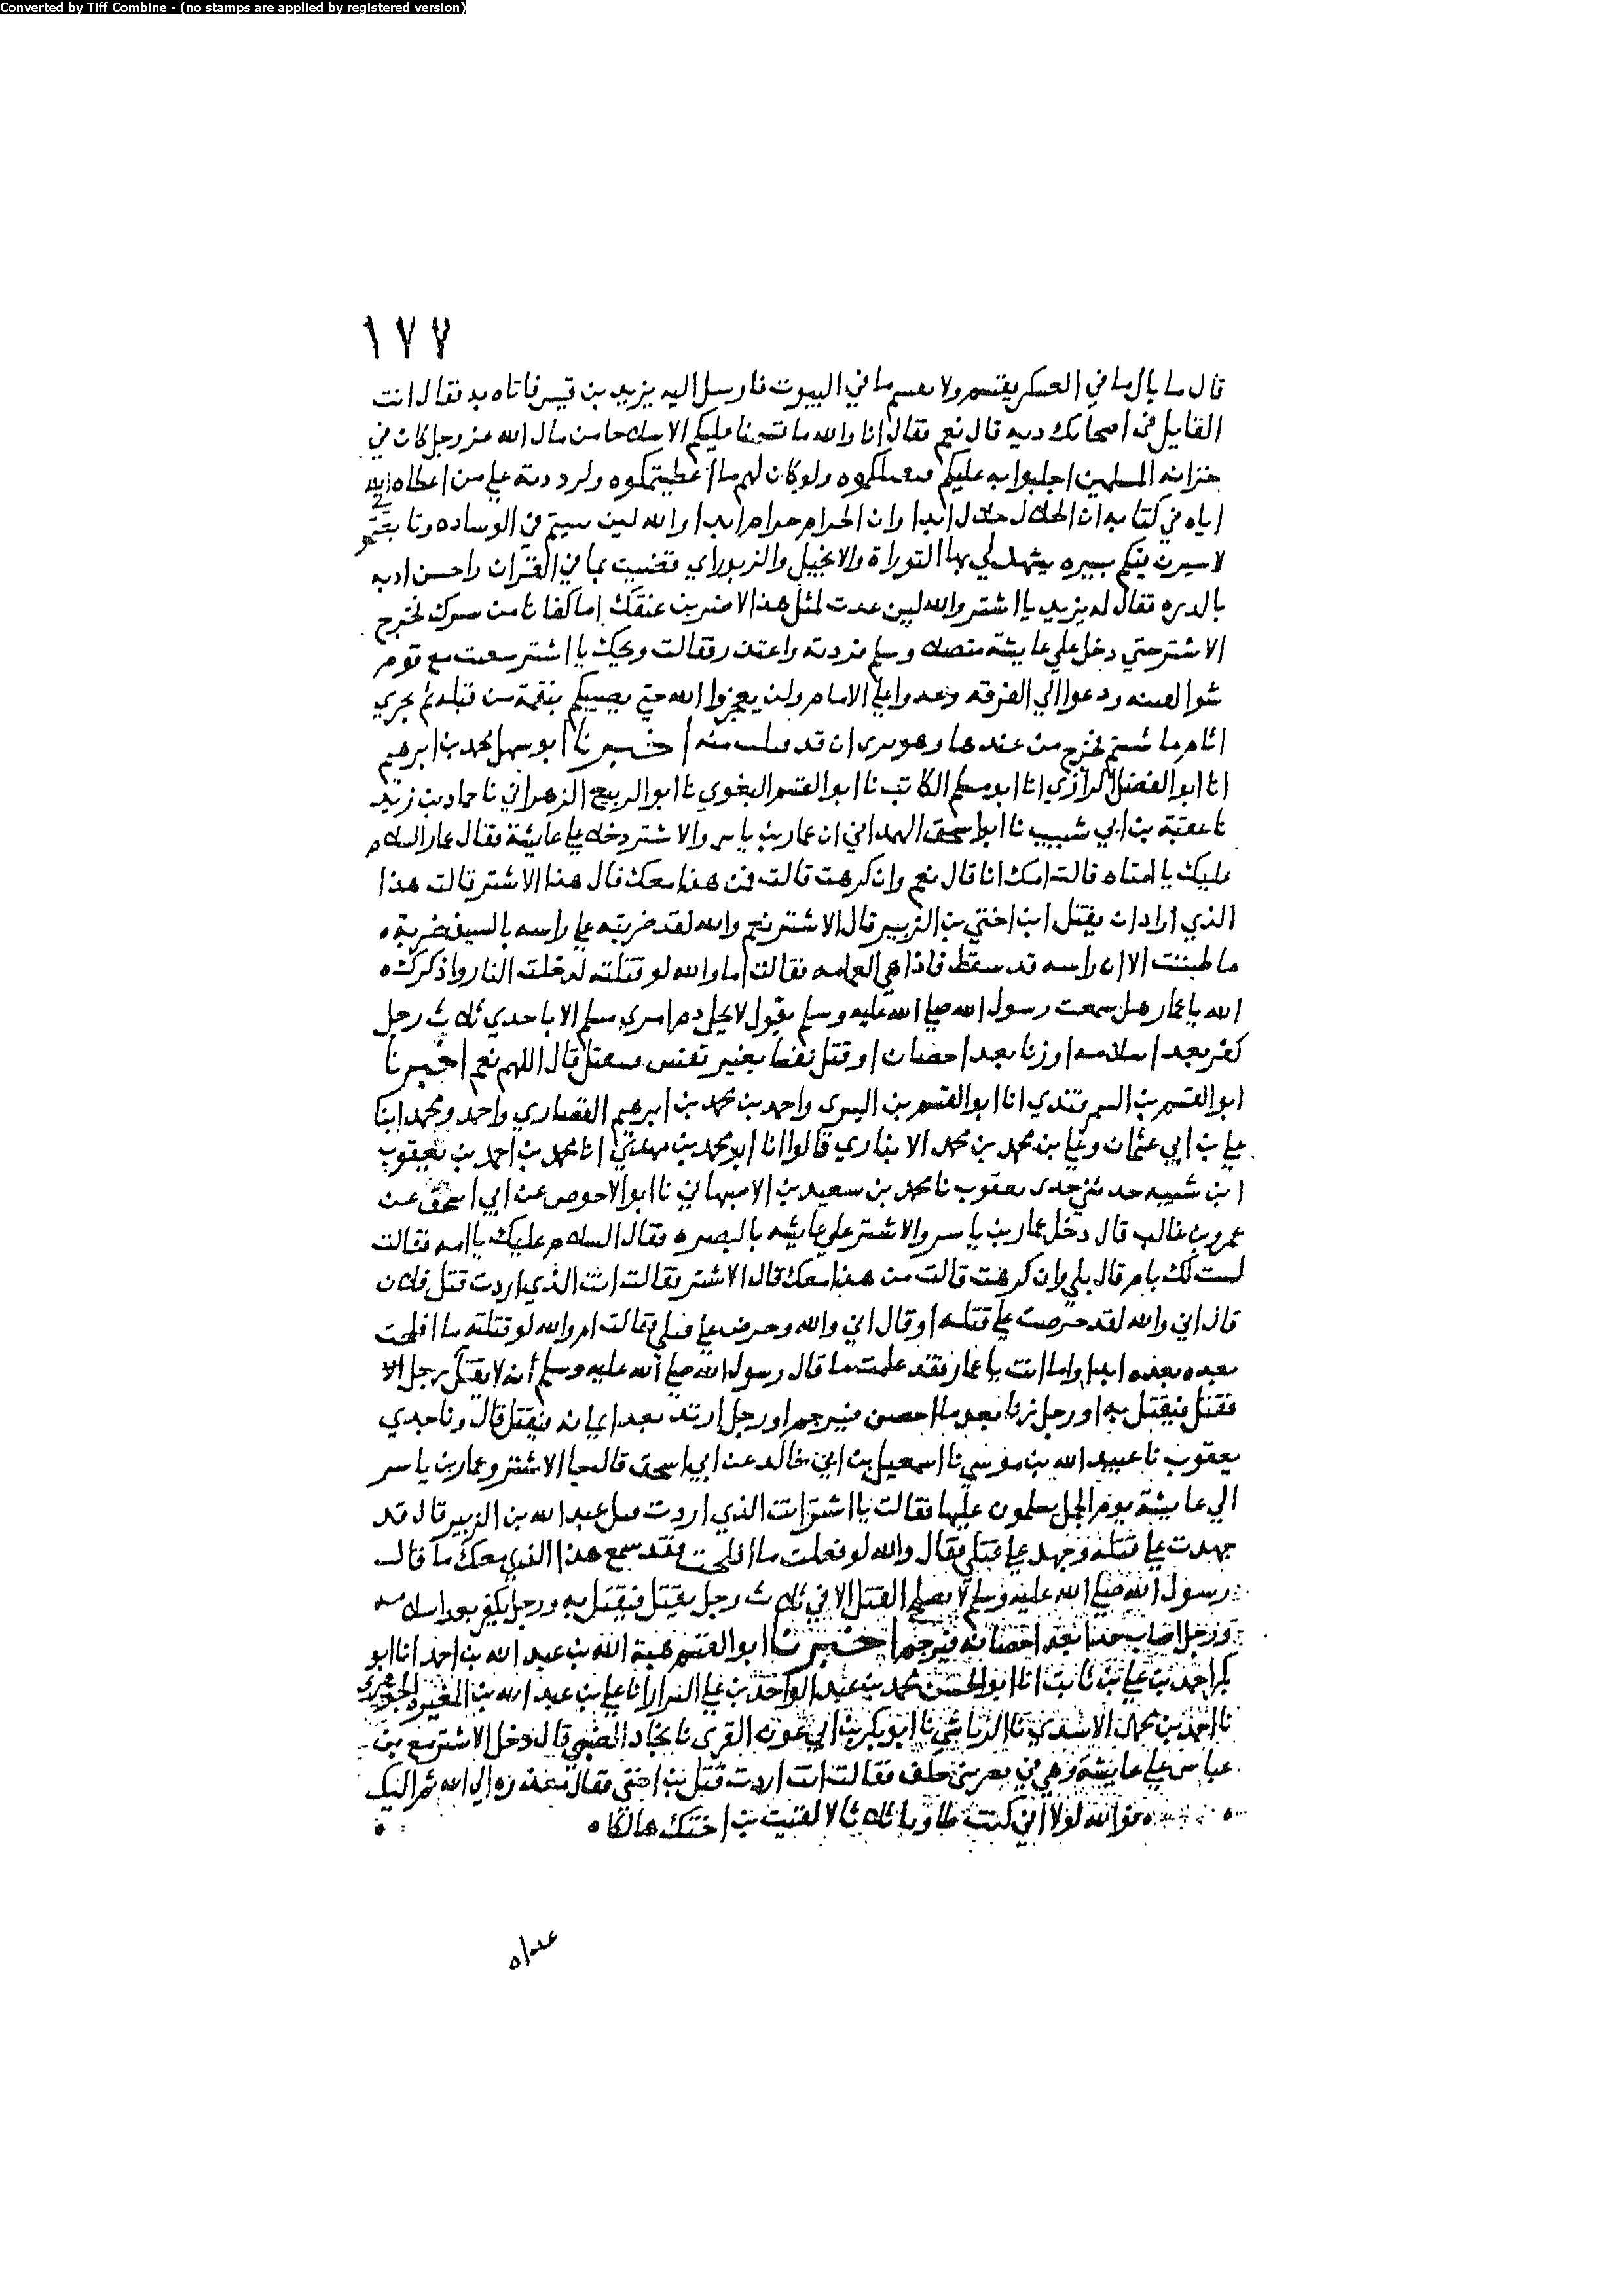 Converted by Tiff Combine - (no stamps are applied by registered version)
١٧٧
قال ما بال ما في العسكر يقتسم ولا يقسم ما في البيوت فارسل اليه يزيد بن قيس فاتاه به فقال انت
القايل في اصحابك قال نعم فقال انا والله ما قسمنا عليكم الا سلاحا من مال الله عز وجل كان في
خزانه المسلمين اجلبوا به عليكم ولو كان لهم ما اعطيتكموه ولرددته علي من اعطاه الله
اياه في كتابه ان الحلال حلال ابدا وان الحرام حرام ابدا والله لين في الوساده
لاسيرن فيكم سيره يشهد لي بها التوراة والانجيل والزبور اي قضيت بما في القران واحسن ادبه
بالدره فقال له يزيد يا اشتر والله لين عدت لمثل هذا لاضربن عنقك اما كفانا من فخرج
الاشتر حتي دخل علي عايشة وسلم فردته واعتذر فقالت ويحك يا اشتر سعيت مع قوم
ودعوا الي الفرقه وعدوا علي الامام ولن يعجزوا الله حتي يصيبكم بنقمة من قبله ثم يجري
فخرج من عندها وهو يرى ان قد منه اخبرنا ابو سهل محمد بن ابرهيم
انا ابو الفضل الرازي انا ابو مسلم الكاتب نا ابو القسم البغوي نا ابو الربيع الزهراني نا حماد بن زيد
نا عقبة بن ابي شبيب نا ابو اسحق الهمداني ان عمار بن ياسر والاشتر دخلا علي عايشة فقال عمار السلام
عليك يا امتاه قالت امك انا قال نعم وان كرهت قالت فمن هذا معك قال هذا الاشتر قالت هذا
الذي اراد ان يقتل ابن اختي بن الزبير قال الاشتر نعم والله لقد ضربته علي راسه بالسيف ضربة
ما ظننت الا ان راسه قد سقط فاذا هي العمامه فقالت اما والله لو قتلته لدخلت النار واذكرك
الله يا عمار هل سمعت رسول الله صلي الله عليه وسلم يقول لا يحل دم امري مسلم الا باحدي ثلاث رجل
كفر بعد اسلامه او زنا بعد احصان او قتل نفسا بغير نفس فيقتل قال اللهم نعم اخبرنا
ابو القسم بن السمرقندي انا ابو القسم بن البسرى واحمد بن محمد بن ابرهيم القصاري واحمد ومحمد ابنا
علي بن ابي عثمان وعلي بن محمد بن محمد الانباري قالوا انا ابو محمد بن مهدي انا محمد بن احمد بن يعقوب
ابن شيبه حدثني جدى يعقوب نا محمد بن سعيد بن الاصبهاني نا ابو الاحوص عن ابي اسحق عن
عمرو بن غالب قال دخل عمار بن ياسر والاشتر علي عايشه بالبصره فقال السلام عليك يا امه فقالت
لست لك بام قال بلي وان كرهت قالت من هذا معك قال الاشتر فقالت انت الذي اردت قتل فلان
قال اني والله لقد حرصت علي قتله او قال اني والله وحرص علي قتلي فقالت ام والله لو قتلته ما افلحت
بعده ابدا واما انت يا عمار فقد علمت ما قال رسول الله صلي الله عليه وسلم انه لا يقتل رجل الا
فقتل فيقتل به او رجل زنا بعد ما احصن فيرجم او رجل ارتد بعد ايمانه فيقتل قال ونا جدي
يعقوب نا عبيد الله بن موسي نا اسمعيل بن ابي خالد عن ابي اسحق قال جا الاشتر وعمار بن ياسر
الي عايشة يوم الجمل يسلمون عليها فقالت يا اشتر انت الذي اردت قتل عبد الله بن الزبير قال قد
جهدت علي قتله وجهد علي قتلي فقال والله لو فعلت ما افلحت فقد سمع هذا الذي معك ما قال
رسول الله صلي الله عليه وسلم لا يصلح القتل الا في ثلاث رجل يقتل فيقتل به ورجل يكفر بعد اسلامه
ورجل اصاب حدا بعد احصانه فيرجم اخبرنا ابو القسم هبة الله بن عبد الله بن احمد انا ابو
بكر احمد بن علي بن ثابت انا ابو الحسن محمد بن عبد الواحد بن علي البزار انا علي بن عبد الله بن المغيره الجوهري
نا احمد بن محمد الاسدي نا الرياشي نا ابو بكر بن ابي عون المقرى نا الضبي قال دخل الاشتر مع بن
عباس علي عايشة وهي في فقالت انت اردت قتل بن اختي فقال معذره الي الله ثم اليك
فوالله لولا اني كنت طاويا ثلاثا لالفيت بن اختك هالكا